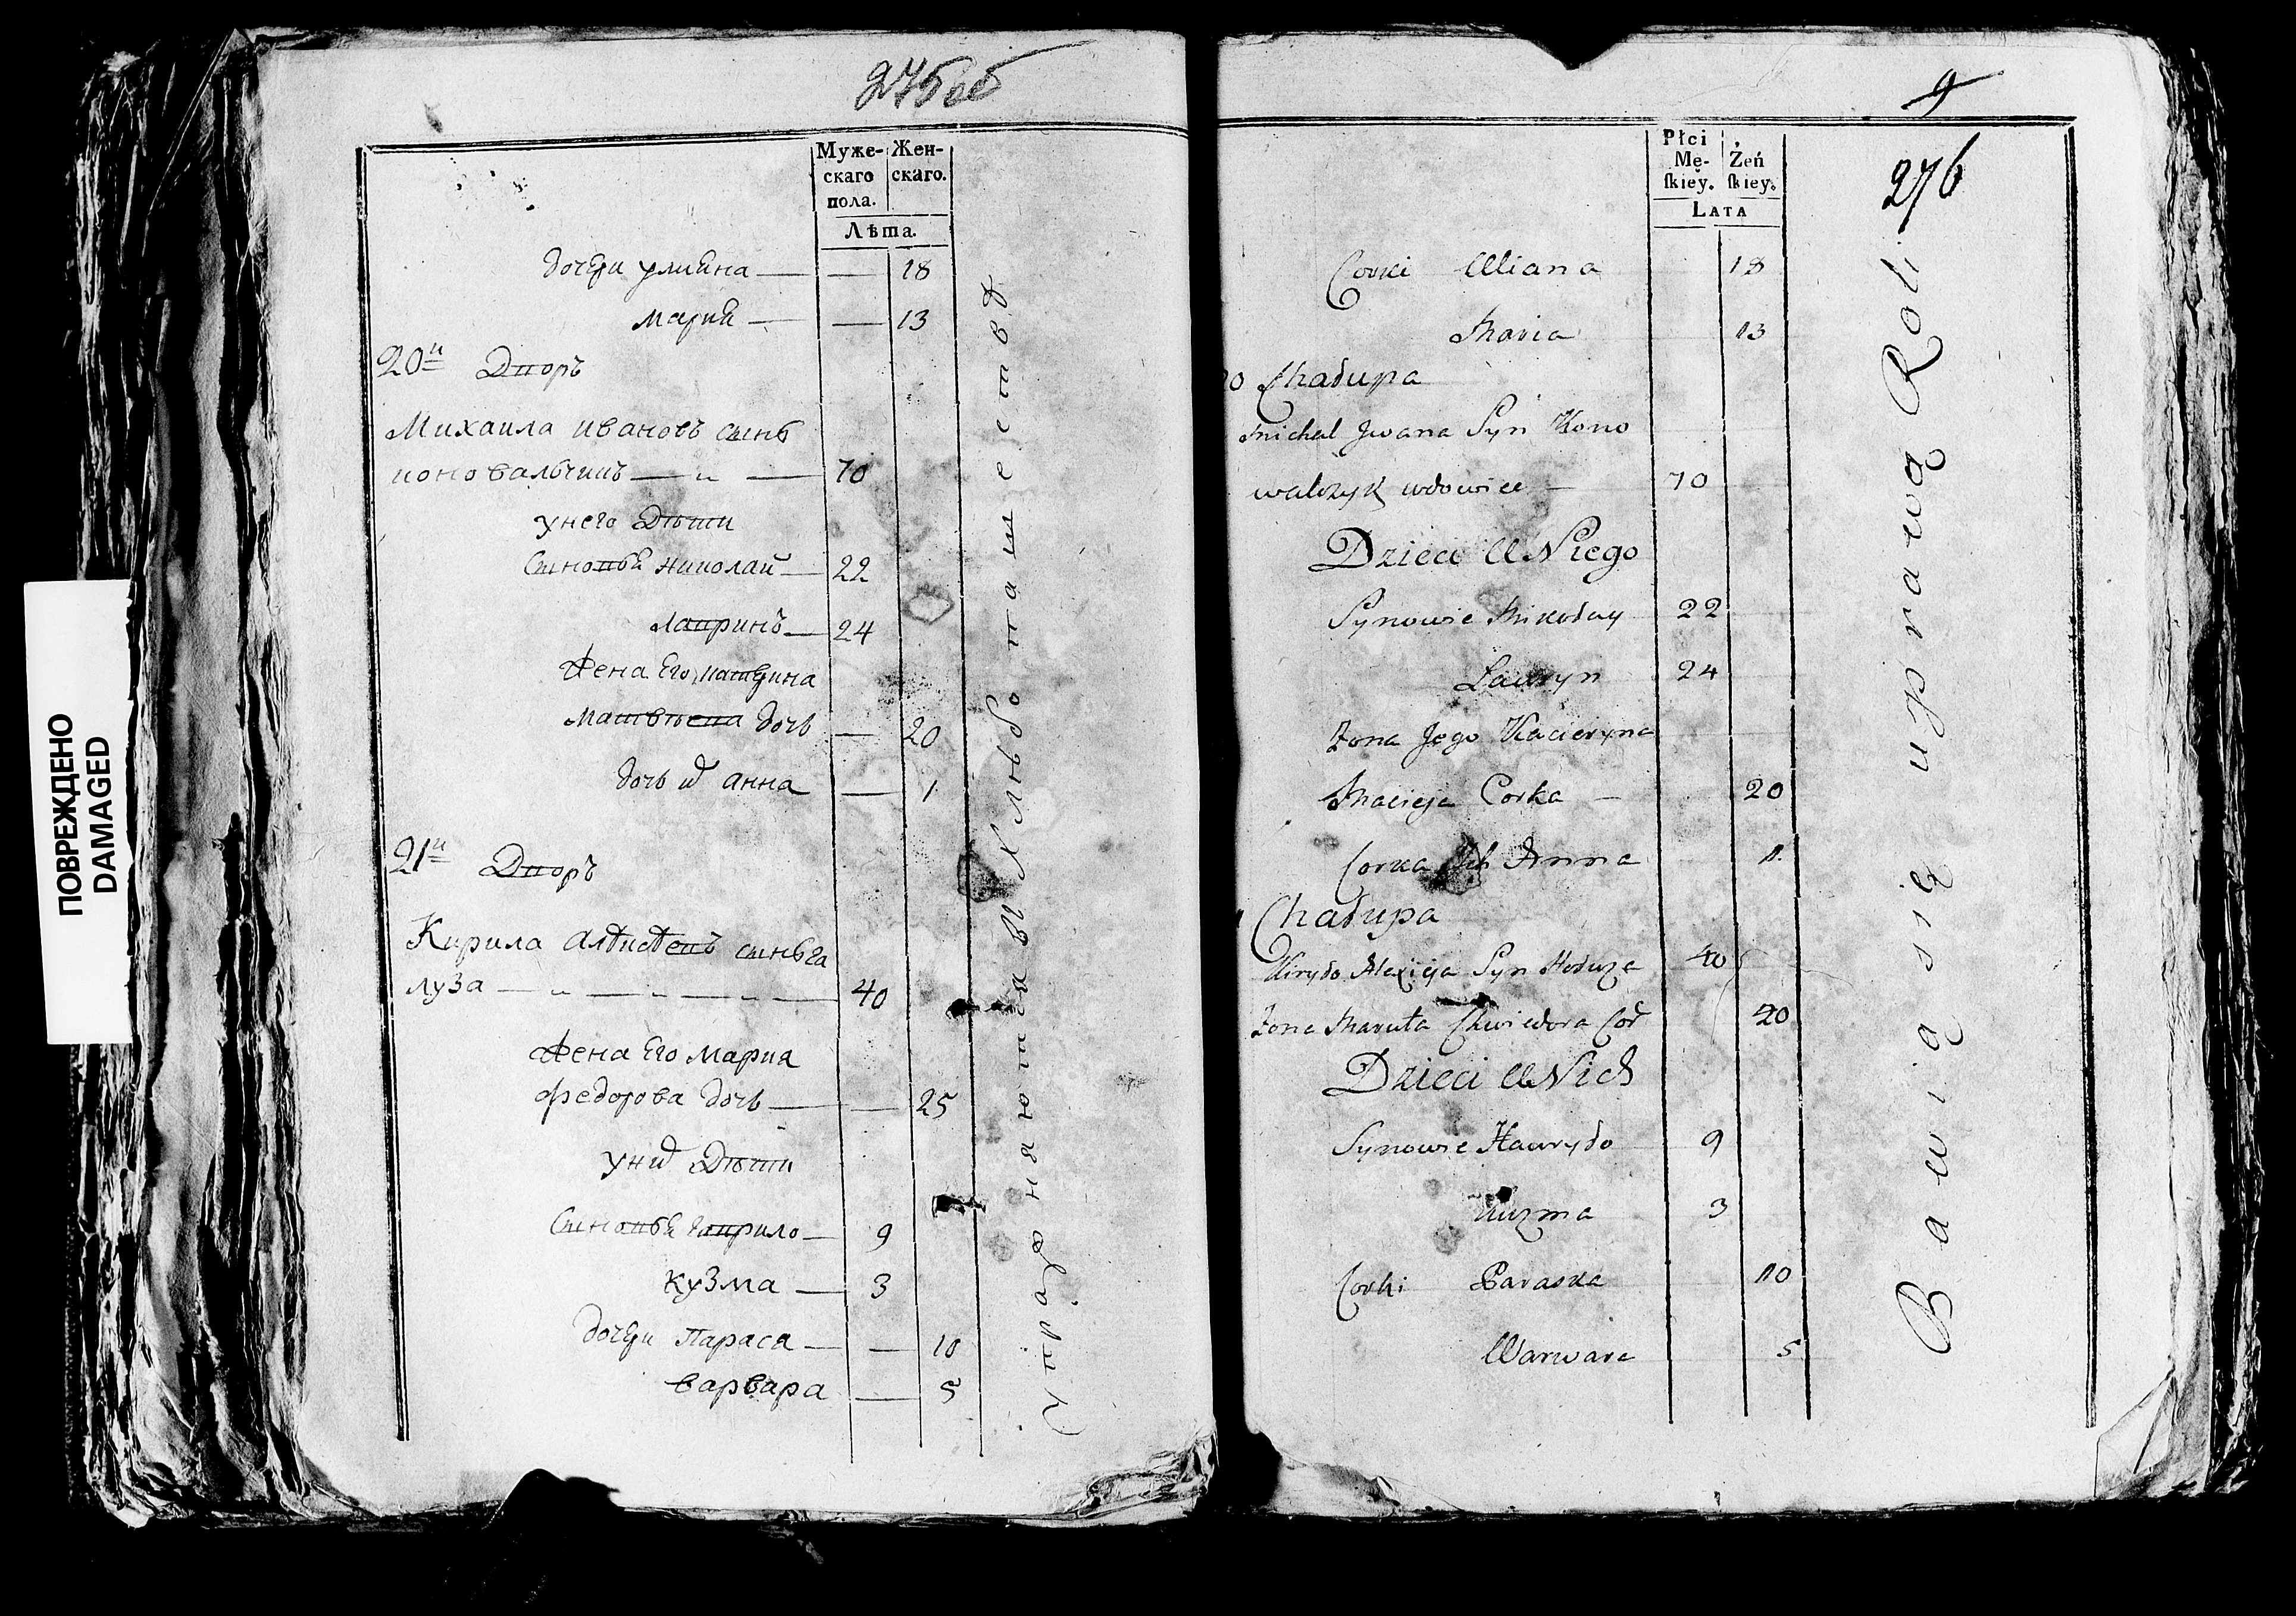 ПОВРЕЖДЕНО
DAMAGED
275об
Муже-
скаго
пола.
Жен-
скаго.
Лѣта.
дочери улияна — — 18
Мария — — 13
20й Дворъ
Михаила Ивановъ сынъ
коновальчикъ — „ — 70
у него Дѣти
Сыновья николай — 22
лавринъ — 24
Жена Его катерина
Матвѣева дочь — 20
дочь их анна — 1
21й Дворъ
Кирила алексѣевъ сынъ га
луза — „ — „ — „ — 40
Жена Его Мария
федорова дочь — — 25
у них Дѣти
Сыновья гаврило — 9
Кузма — 3
дочери Параса — — 10
варвара — 5
Упражняются в Хлѣбопашествѣ
9
276
Płci
Mę-
skiey.
Żeń
skiey.
Lata
Corki Uliana 18
Maria 13
20 Chałupa
Michał Jwana Syn Kono
walczyk wdowiec — 70
Dzieci U Niego
Synowie Mikołay 22
Ławryn 24
Żona Jego Kacieryna
Macieja Corka — 20
Corka Jch Anna 1.
Chałupa
Kiryło Alexieja Syn Hołuza 40
Żona Maruta Chwiedora Cor 20
Dzieci U Nich
Synowie Hawryło 9
Kuzma 3
Corki Paraska 10
Warwara 5
Bawią się uprawą Roli